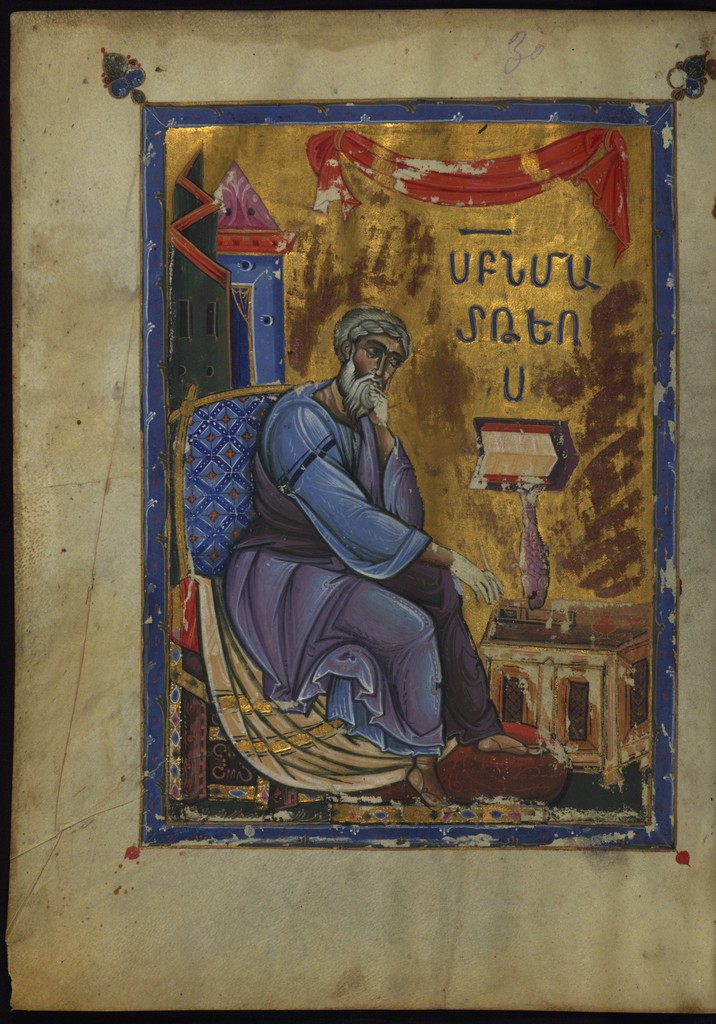 30
ՍԲՆՄԱ
ՏԹԵՈ
Ս